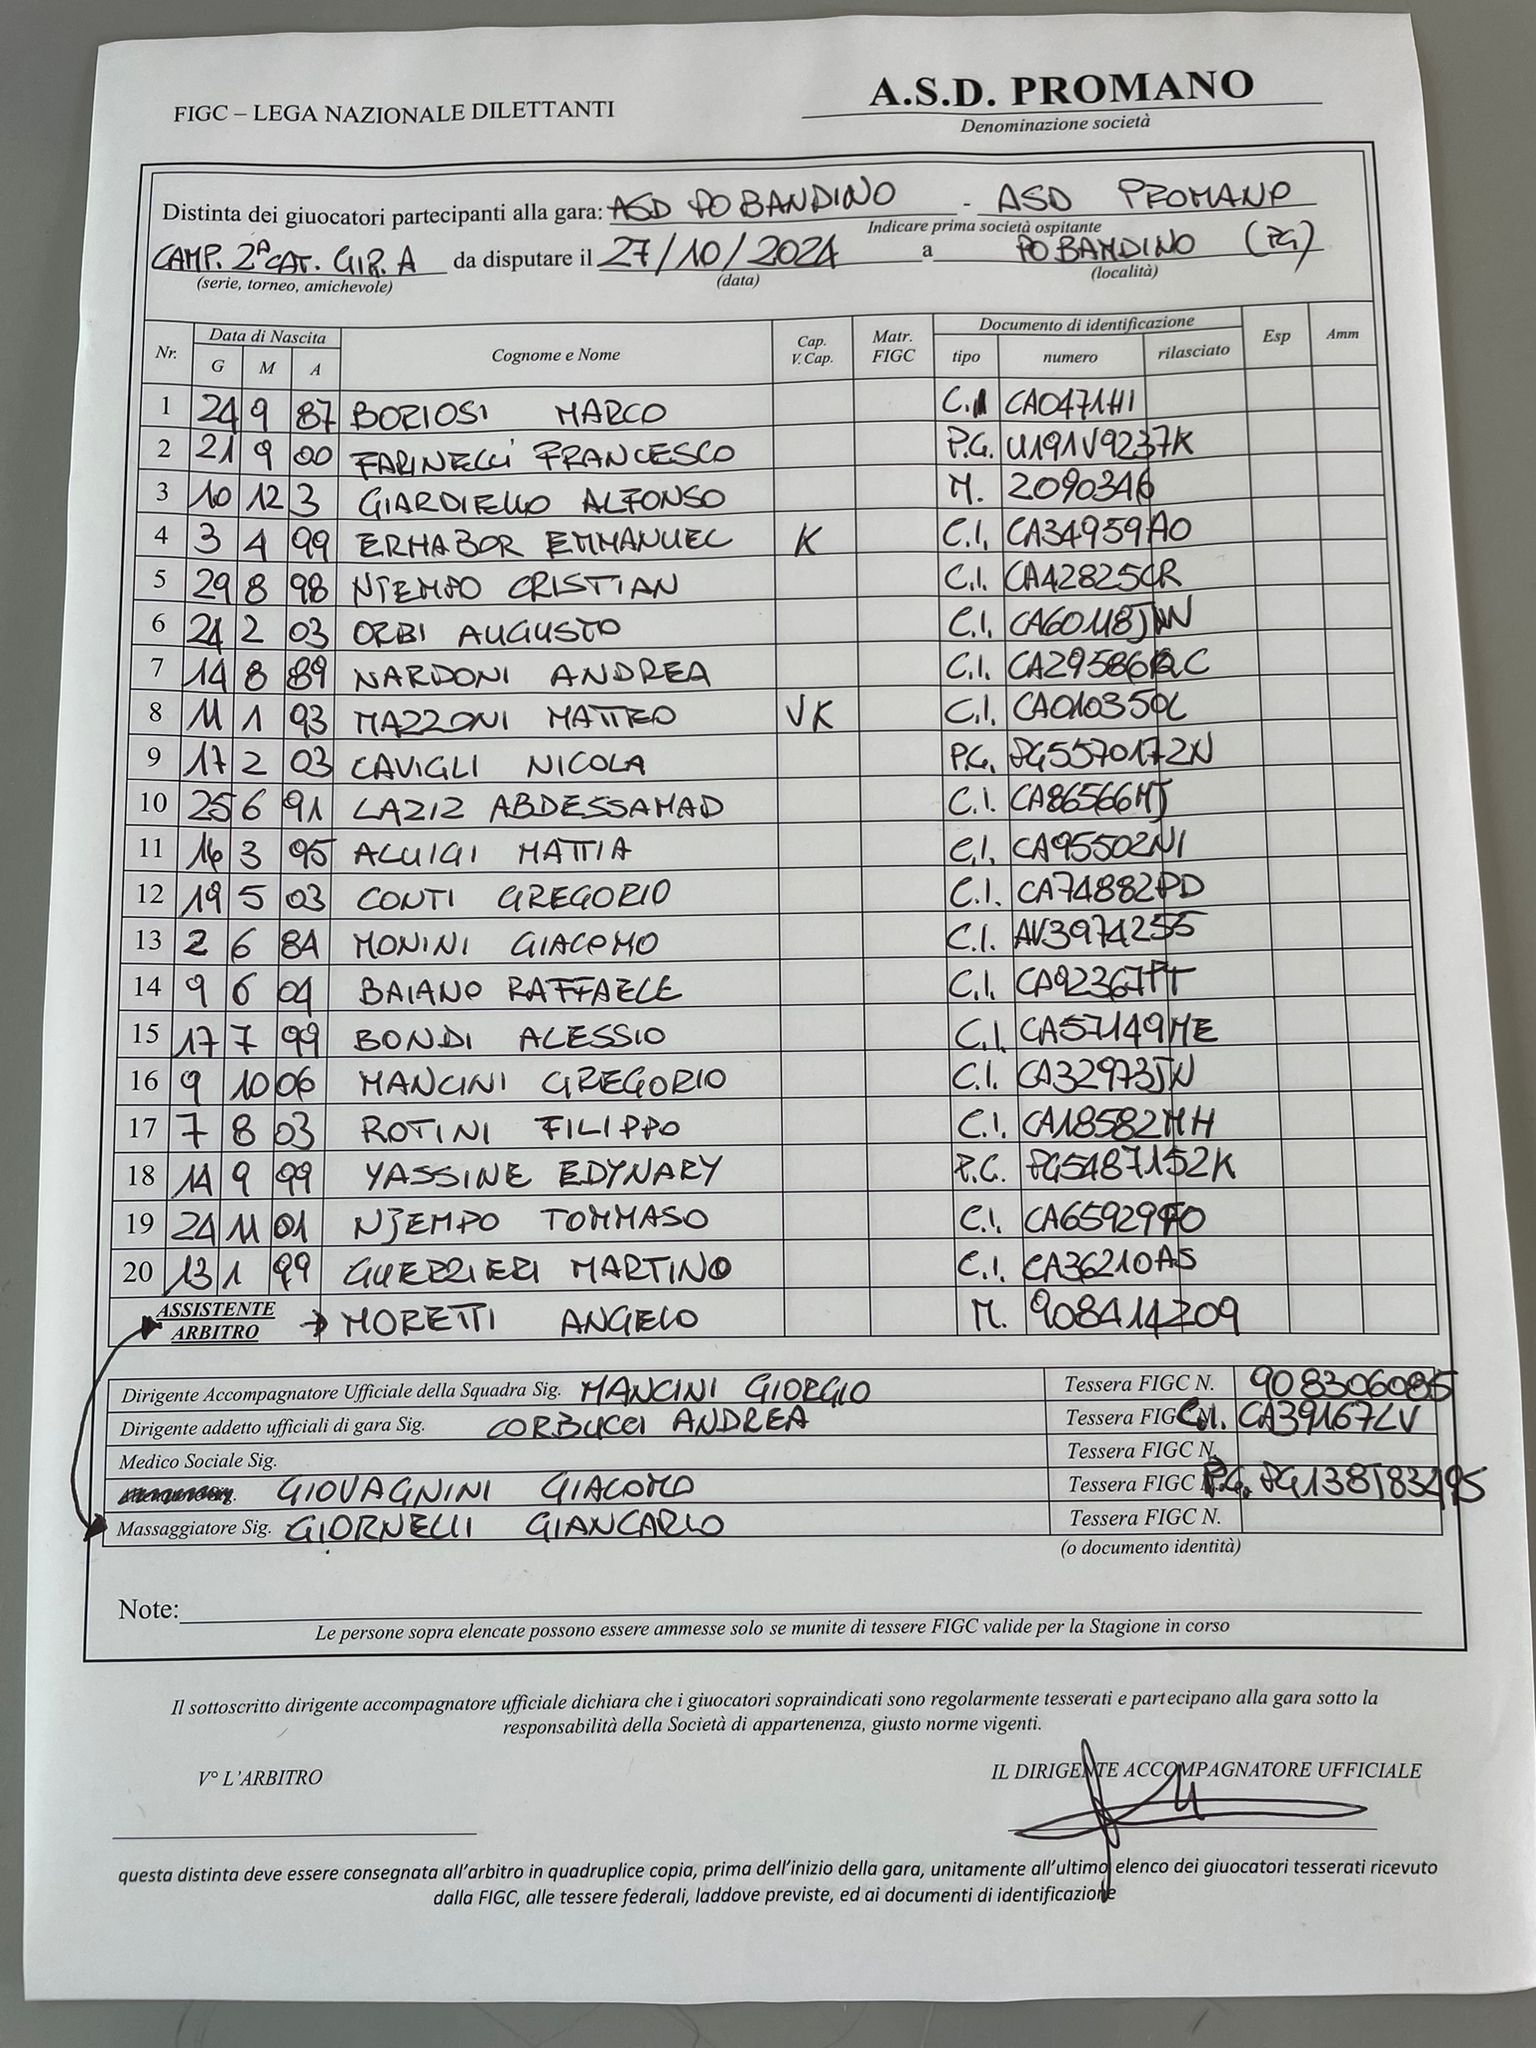 FIGC – LEGA NAZIONALE DILETTANTI
A.S.D. PROMANO
Denominazione società
Distinta dei giuocatori partecipanti alla gara: ASD PO BANDINO - ASD PROMANO
Indicare prima società ospitante
CAMP. 2ª CAT. GIR. A da disputare il 27/10/2024 a PO BANDINO (PG)
(serie, torneo, amichevole) (data) (località)
Nr. Data di Nascita Cognome e Nome Cap. V. Cap. Matr. FIGC Documento di identificazione Esp Amm
G M A tipo numero rilasciato
1 24 9 87 BORIOSI MARCO C.I. CA0471HI
2 21 9 00 FARINELLI FRANCESCO P.G. U191V9237K
3 10 12 3 GIARDIELLO ALFONSO M. 2090346
4 3 4 99 ERHABOR EMMANUEL K C.I. CA34959AO
5 29 8 98 NJEMPO CRISTIAN C.I. CA42825CR
6 24 2 03 ORBI AUGUSTO C.I.
7 14 8 89 NARDONI ANDREA C.I.
8 11 1 93 MAZZONI MATTEO VK C.I. CA01035OL
9 17 2 03 CAVIGLI NICOLA P.G. PG5570172N
10 25 6 91 LAZIZ ABDESSAMAD C.I. CA86566MJ
11 16 3 95 ALUIGI MATTIA C.I. CA95502NI
12 19 5 03 CONTI GREGORIO C.I. CA74882PD
13 2 6 84 MONINI GIACOMO C.I. AV3974255
14 9 6 04 BAIANO RAFFAELE C.I. CA92367PT
15 17 7 99 BONDI ALESSIO C.I. CA57149ME
16 9 10 06 MANCINI GREGORIO C.I. CA32973JN
17 7 8 03 ROTINI FILIPPO C.I. CA18582MH
18 14 9 99 YASSINE EDYNARY P.G. PG5487152K
19 24 11 01 NJEMPO TOMMASO C.I.
20 13 1 99 GUERRIERI MARTINO C.I. CA36210AS
ASSISTENTE ARBITRO → MORETTI ANGELO M. 908414209
Dirigente Accompagnatore Ufficiale della Squadra Sig. MANCINI GIORGIO Tessera FIGC N. 908306085
Dirigente addetto ufficiali di gara Sig. CORBUCCI ANDREA Tessera FIGC N. C.I. CA39167LV
Medico Sociale Sig. Tessera FIGC N.
Sig. GIOVAGNINI GIACOMO Tessera FIGC N. P.G. PG138T83495
Massaggiatore Sig. GIORNELLI GIANCARLO Tessera FIGC N.
(o documento identità)
Note:
Le persone sopra elencate possono essere ammesse solo se munite di tessere FIGC valide per la Stagione in corso
Il sottoscritto dirigente accompagnatore ufficiale dichiara che i giuocatori sopraindicati sono regolarmente tesserati e partecipano alla gara sotto la
responsabilità della Società di appartenenza, giusto norme vigenti.
V° L'ARBITRO IL DIRIGENTE ACCOMPAGNATORE UFFICIALE
questa distinta deve essere consegnata all'arbitro in quadruplice copia, prima dell'inizio della gara, unitamente all'ultimo elenco dei giuocatori tesserati ricevuto
dalla FIGC, alle tessere federali, laddove previste, ed ai documenti di identificazione